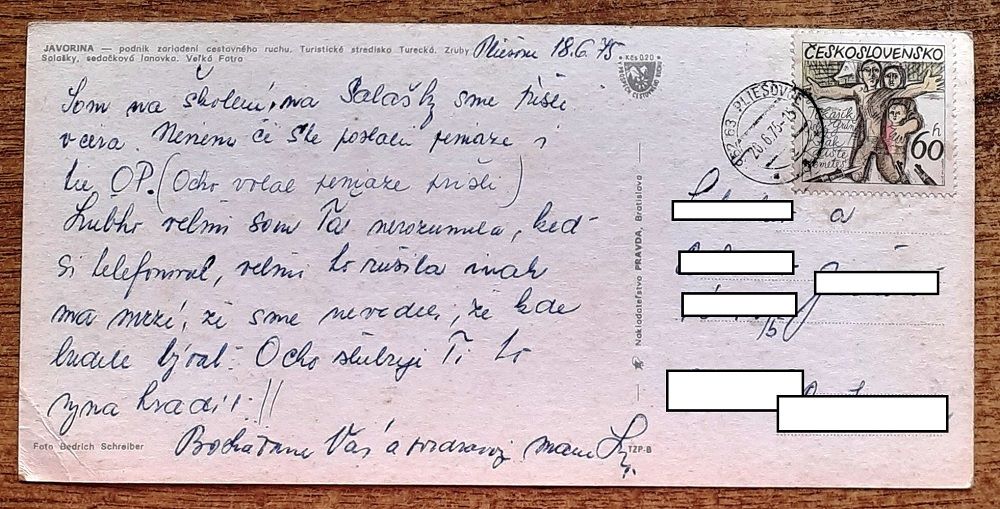 JAVORINA — podnik zariadení cestovného ruchu. Turistické stredisko Turecká. Zruby
Salašky, sedačková lanovka. Veľká Fatra
Pliešovce 18.6.75
Kčs 0,20
ČESKOSLOVENSKO
60 h
962 63 PLIEŠOVCE
20.6.75-15
Som na školení, na Salašky sme prišli
včera. Neviem či ste poslali peniaze i
tie OP. (Ocho volal peniaze prišli)
veľmi som Ťa nerozumela, keď
si telefonoval, veľmi to rušilo inak
ma mrzí, že sme nevedeli, že kde
budete bývať. Ocho sľubuje Ti to
vynahradiť!!
Vás a pozdravuje mama
a
Nakladateľstvo PRAVDA, Bratislava
Foto Bedrich Schreiber
TZP-B